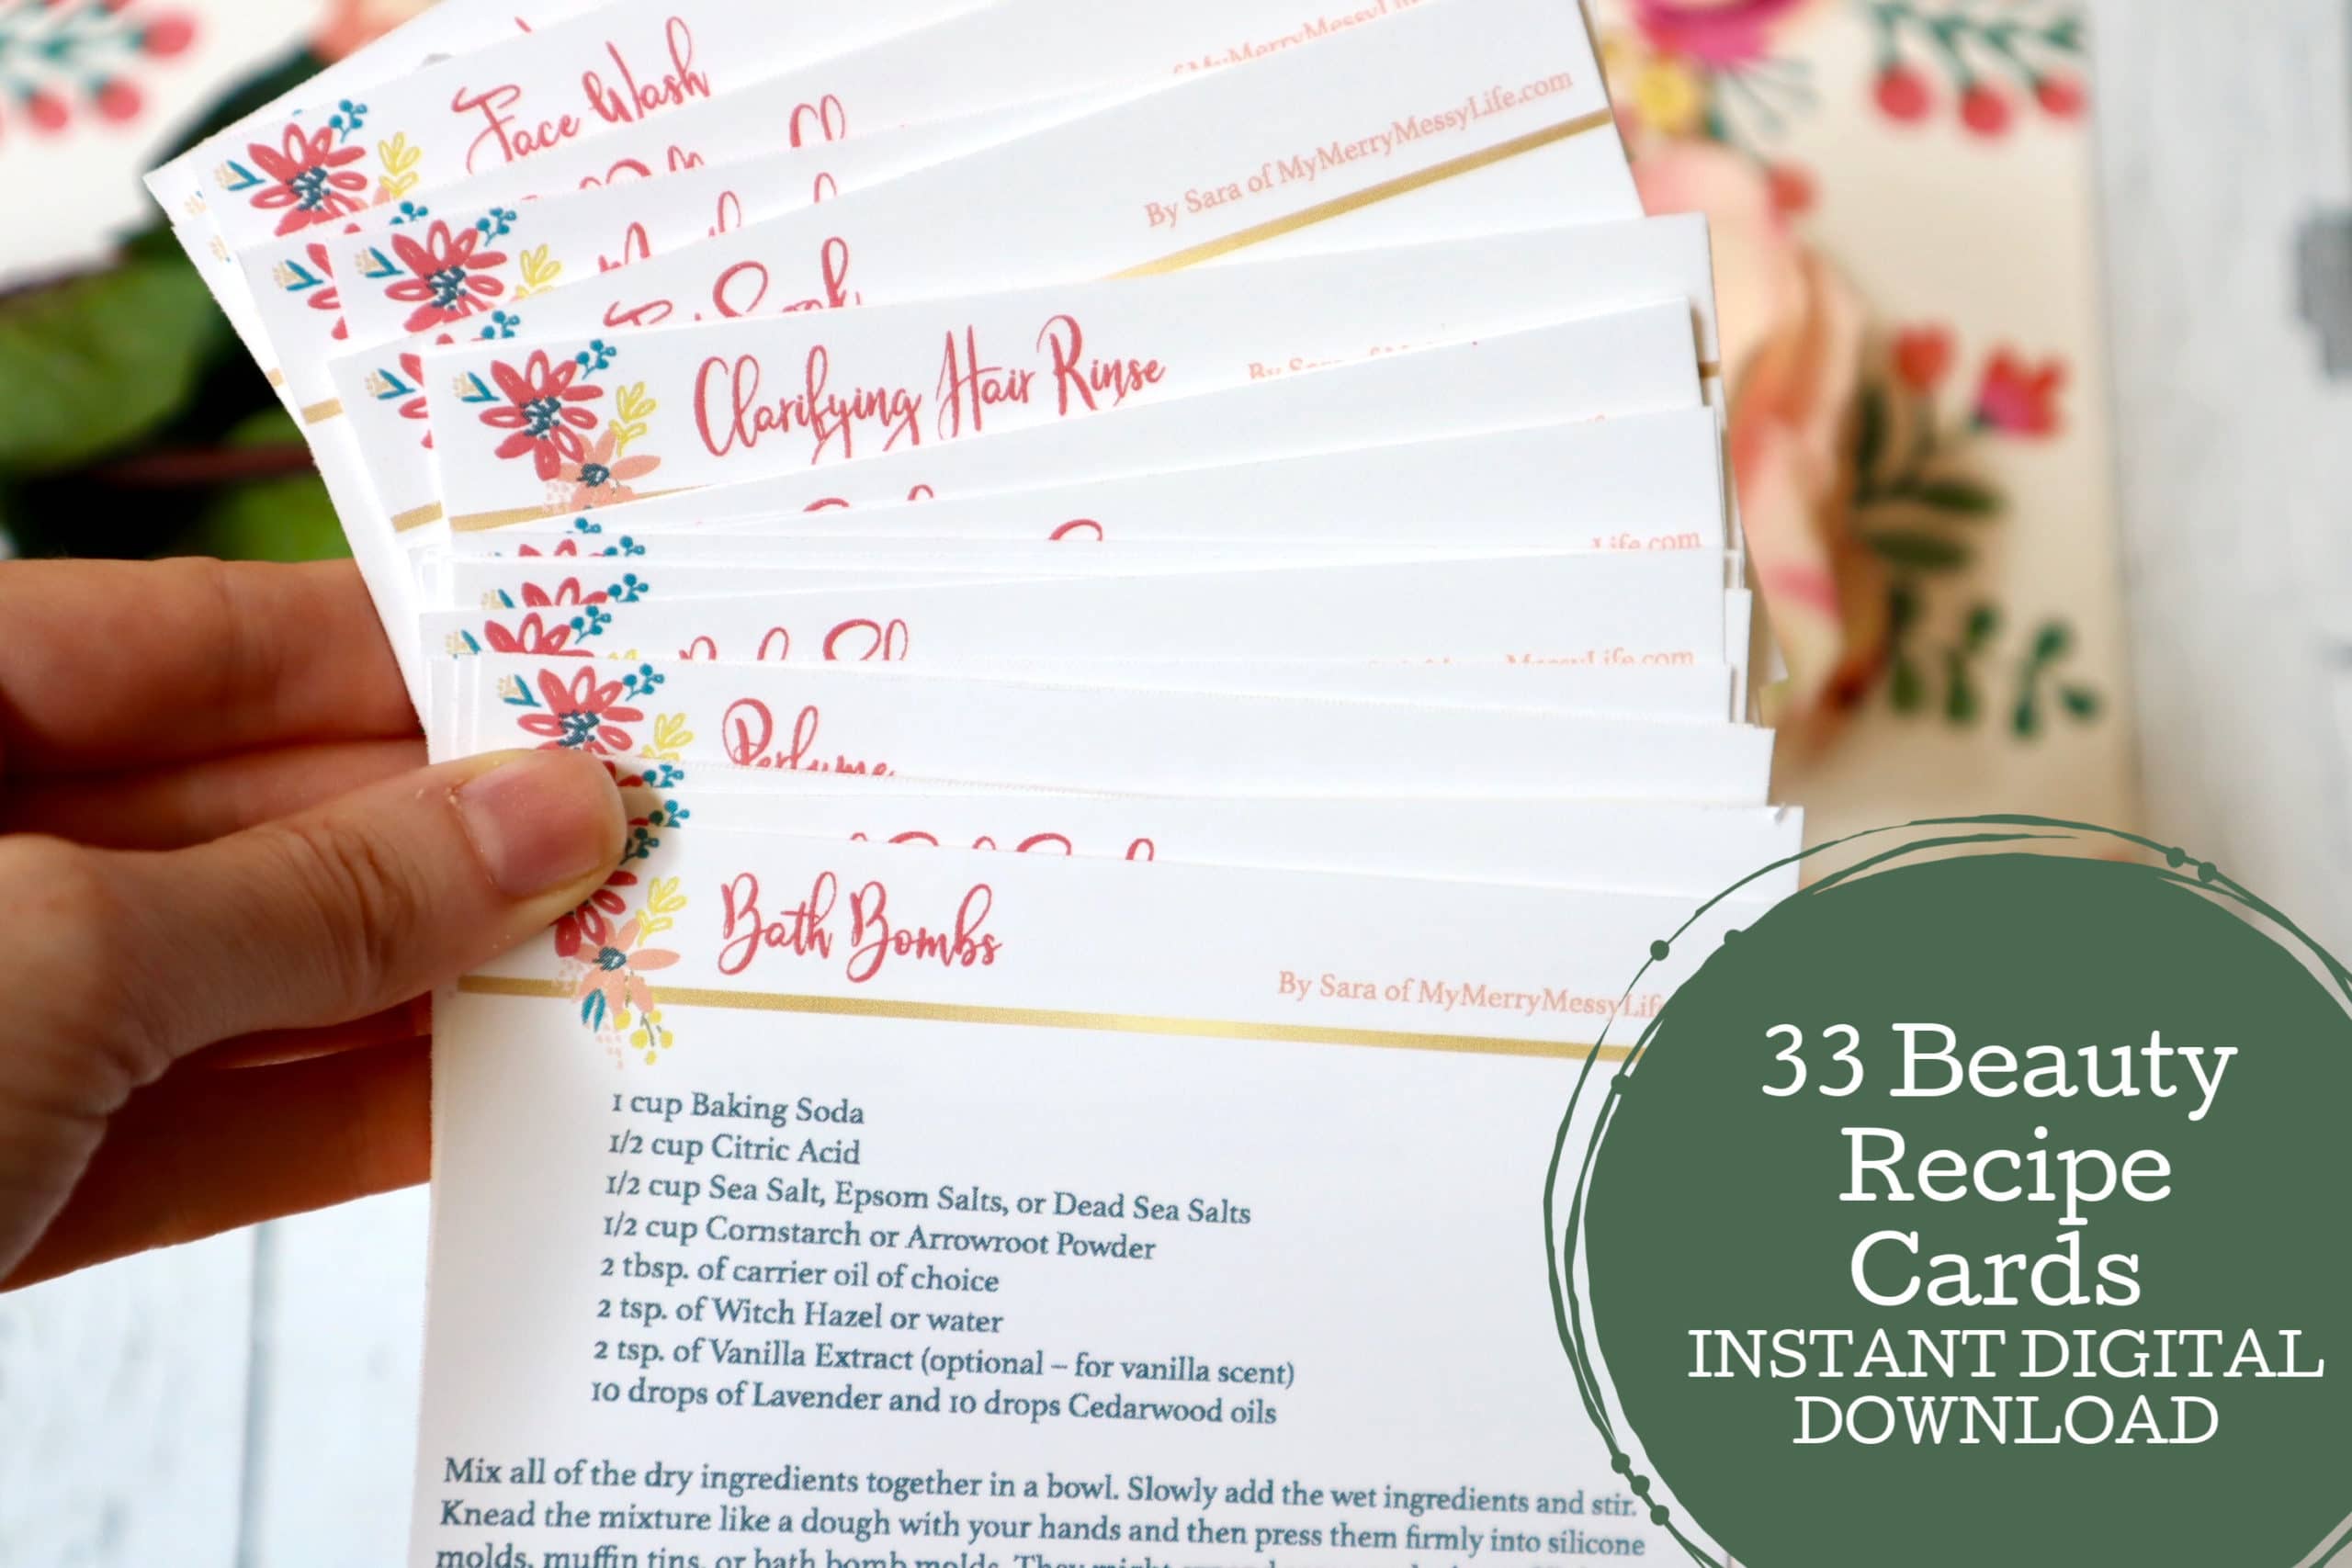 Face Wash
By Sara of MyMerryMessyLife.com
Clarifying Hair Rinse
Life.com
MessyLife.com
Perfume
Bath Bombs
By Sara of MyMerryMessyLif
1 cup Baking Soda
1/2 cup Citric Acid
1/2 cup Sea Salt, Epsom Salts, or Dead Sea Salts
1/2 cup Cornstarch or Arrowroot Powder
2 tbsp. of carrier oil of choice
2 tsp. of Witch Hazel or water
2 tsp. of Vanilla Extract (optional – for vanilla scent)
10 drops of Lavender and 10 drops Cedarwood oils
Mix all of the dry ingredients together in a bowl. Slowly add the wet ingredients and stir.
Knead the mixture like a dough with your hands and then press them firmly into silicone
molds, muffin tins, or bath bomb molds. They might
33 Beauty
Recipe
Cards
INSTANT DIGITAL
DOWNLOAD